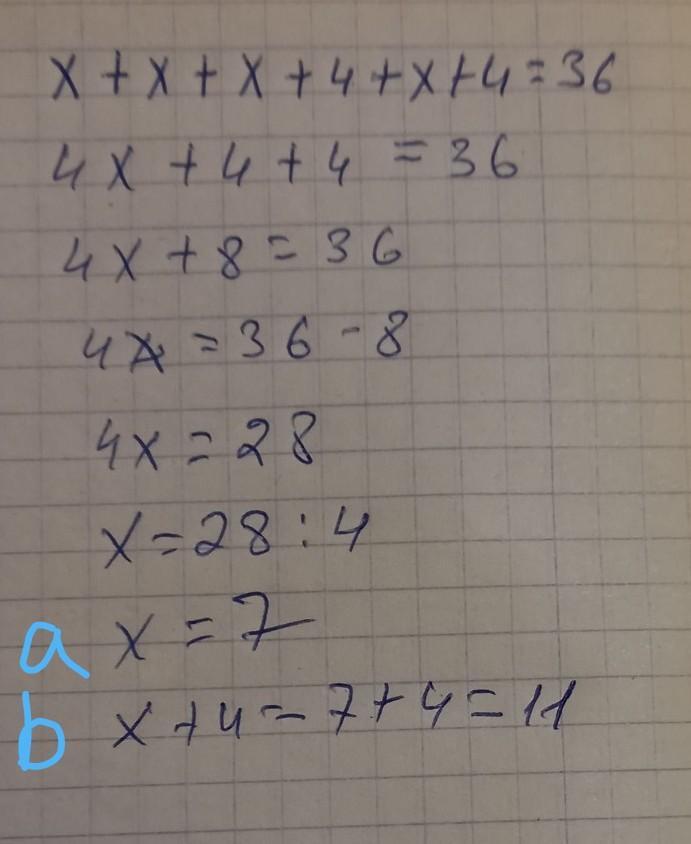 x + x + x + 4 + x + 4 = 36
4x + 4 + 4 = 36
4x + 8 = 36
4x = 36 - 8
4x = 28
x = 28 : 4
a x = 7
b x + 4 = 7 + 4 = 11